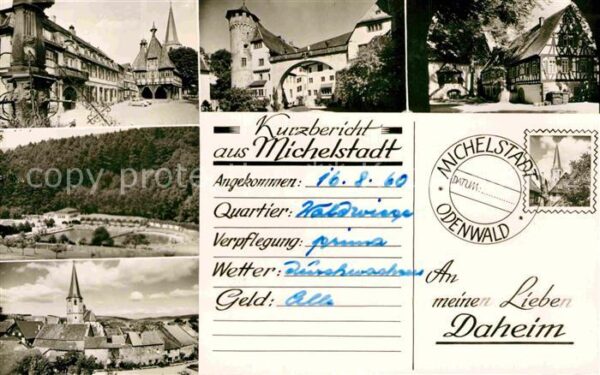 Kurzbericht
aus Michelstadt
Angekommen: 16. 8. 60
Quartier: Waldwiese
Verpflegung: prima
Wetter: durchwachsen
Geld: Alle
MICHELSTADT
DATUM:
ODENWALD
An
meinen Lieben
Daheim
copyright